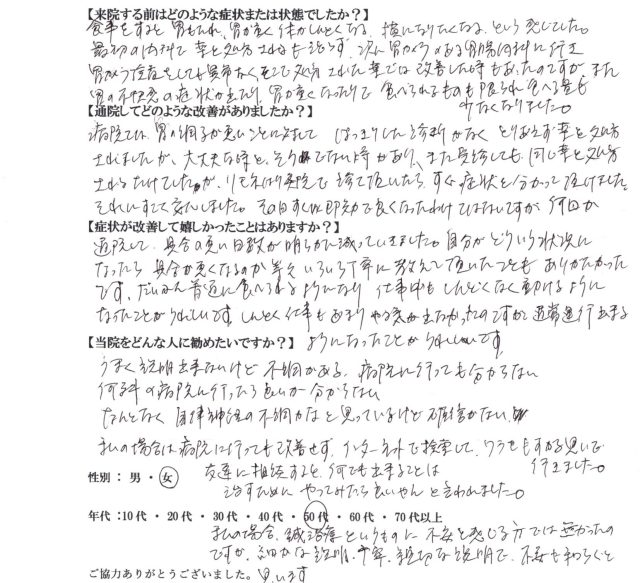 【来院する前はどのような症状または状態でしたか？】
食事をすると胃もたれ、胃が重く体がしんどくなる、横になりたくなる、という感じでした。
最初の内科で薬を処方されるも治らず、次に胃カメラのある胃腸内科に行き
胃カメラ検査をしても異常なくそこで処方された薬では改善した時もあったのですが、また
胃の不快感の症状が出たり、胃が重くなったりで食べられるものも限られ食べる量も
少なくなりました。
【通院してどのような改善がありましたか？】
病院では、胃の調子が悪いことに対して はっきりした診断がなく とりあえず薬を処方
されましたが、大丈夫な時と、そうでない時があり、また受診しても同じ薬を処方
されるだけでしたが、 で診て頂いたら、すぐ症状を分かって頂けました
それにすごく安心しました。その日すぐに即効で良くなったわけではないですが、何回か
【症状が改善して嬉しかったことはありますか？】
通院して、具合の悪い日数が明らかに減っていきました。自分がどういう状況に
なったら具合が悪くなるのか等々いろいろ丁寧に教えて頂いたことも ありがたかった
です。だいぶん普通に食べられるようになり 仕事中もしんどくなく動けるように
なったことがうれしいです。しんどく仕事もあまりやる気が出なかったのですが通常通行出来る
ようになったことがうれしいです。
【当院をどんな人に勧めたいですか？】
うまく説明出来ないけど不調がある、病院に行っても分からない
何科の病院に行ったら良いか分からない
なんとなく自律神経の不調かなと思っているけど確信がない
私の場合は病院に行っても改善せず、インターネットで検索して、ワラをもすがる思いで
行きました。
友達に相談すると、何でも出来ることは
治すために やってみたら良いやん と言われました。
性別：男・女
年代：10代・20代・30代・40代・50代・60代・70代以上
私の場合、鍼治療というものに不安を感じる方では無かったの
ですが、細かな説明、丁寧、親切な説明で、不安も和らぐと
思います
ご協力ありがとうございました。